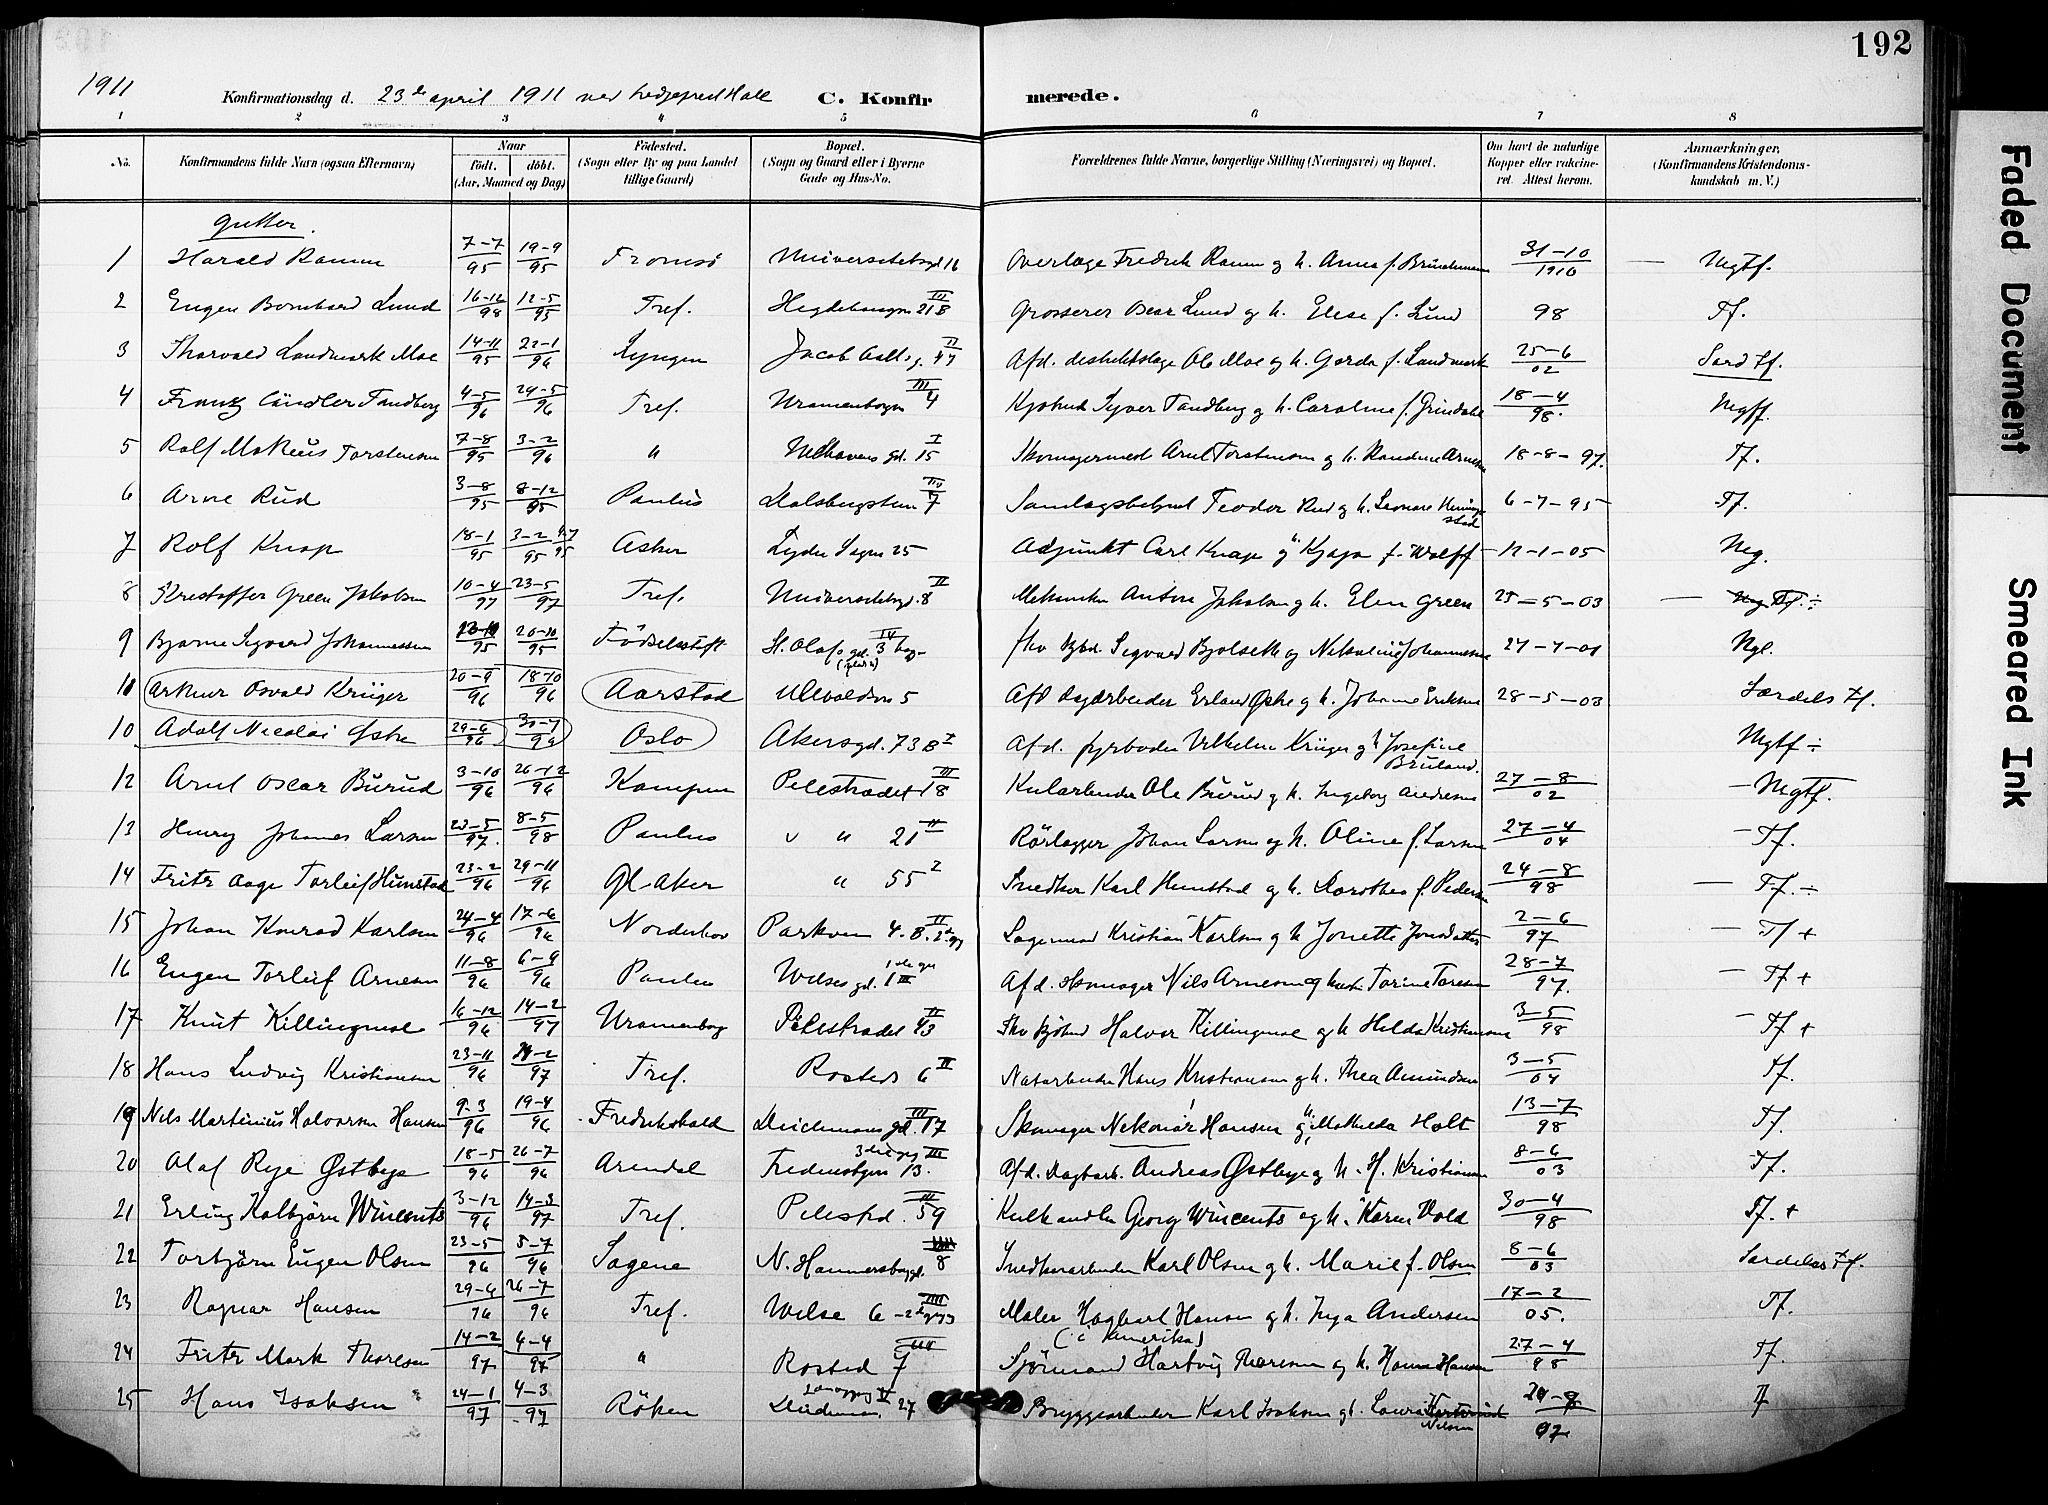 192
1911
Konfirmationsdag d. 23de april 1911 ved Hall C. Konfirmerede.
1 2 3 4 5 6 7 8
No. Konfirmandens fulde Navn (ogsaa Efternavn) Naar født. døbt. (Aar, Maaned og Dag) Fødested. (Sogn eller By og paa Landet tillige Gaard) Bopæl. (Sogn og Gaard eller i Byerne Gade og Hus-No. Forældrenes fulde Navne, borgerlige Stilling (Næringsvei) og Bopæl. Om havt de naturlige Kopper eller vakcineret. Attest herom. Anmærkninger, (Konfirmandens Kristendomskundskab m. V.)
Gutter.
1 Harald Ramm 7-7 95 19-9 95 Tromsö Universitetsgd 16 Overlæge Fredrik Ramm og h. Anna f. 31-10 1910 — Mgtf.
2 Eugen Bernhard Lund 16-12 98 12-5 95 Tref. Hegdehaugsvn 21 B III Grosserer Oscar Lund og h. Elise f. Lund 98 Tf.
3 Thorvald Landmark Moe 14-11 95 22-1 96 Lyngen Jacob Aalls g. 47 II Afd. distriktslæge Ole Moe og h. Gerda f. Landmark 25-6 02 Særd tf.
4 Frantz Tandberg 4-5 96 24-5 96 Tref. Uranienborgvn 4 III Syver Tandberg og h. Caroline f. Grindahl 18-4 98. Mgtf.
5 Rolf Markus Torstensen 7-8 95 3-2 96 " Welhavens gd. 15 I Skomagermest Arnt Torstensen og h. Randine Arnesen 18-8-97. Tf.
6 Arne Rud 3-8 95 8-12 95 Paulus Dalsbergstien 7 IV Teodor Rud og h. Leonore 6-7-95 Tf.
7 Rolf Knap 18-1 95 3-2 95 4-7 95 Asker Lyder Sagens 25 Adjunkt Carl Knap og h. Kjaja f. Wolff 12-1-05 Mg.
8 Kristoffer Green Jakobsen 10-4 97 23-5 97 Tref. Universitetsgd. 8 II Mekaniker Anton Jakobsen og h. Elen Green 25-5-03 — Tf. ÷
9 Bjarne Sigvard Johannessen 95 20-10 95 Fødselsstift St. Olafs gd. 3 IV Sigvald og Nikoline Johannessen 27-7-01 Mgt.
11 Arthur Osvald Krüger 20-9 96 18-10 96 Aarstad Ullevoldsvn 5 Afd dagarbeider Erland Østre og h. Johanne Eriksen 28-5-03 Særdels tf.
10 Adolf Nicolai Østre 29-6 96 30-7 96 Oslo Akersgd. 73 B I Afd. fyrbøder Vilhelm Krüger og h Josefine Bruland. Mgtf ÷
12 Arnt Oscar Burud 3-10 96 26-12 96 Kampen Pilestrædet 18 III Kularbeider Ole Burud og h. Ingeborg Andresen 27-8 02 — Mgtf.
13 Henry Johannes Larsen 23-5 97. 8-5 98 Paulus " " 21 II Rörlægger Johan Larsen og h. Oline f. Larsen 27-4 04 — Tf.
14 Fritz Aage Torleif Hunstad 23-2 96 29-11 96 Gl. Aker " 55 2 Snedker Karl Hunstad og h. Dorothea f. Pedersen 24-8 98 — Tf. ÷
15 Johan Konrad Karlsen 24-4 96 17-6 96 Norderhov Parkvn 4. B. II Lagermand Kristian Karlsen og h Jonette Jonsdatter 2-6 97 — Tf +
16 Eugen Torleif Arnesen 11-8 96 6-9 96 Paulus Wilses gd. 1 III Afd. skomager Nils Arnesen og hustr. Torine Toresen 28-7 97. — Tf +
17 Knut Killingmoe 16-12 96 14-2 97 Uranienborg Pilestrædet 43 II Halvor Killingmoe og h Hilda Kristiansen 3-5 98 — Tf +
18 Hans Ludvig Kristiansen 23-11 96 21-2 97 Tref. Rosteds 6 II Natarbeider Hans Kristiansen og h. Thea Amundsen 3-5 04 Tf.
19 Nils Martinius Halvorsen Hansen 9-3 96 19-4 96 Fredrikshald Deichmans gd. 17 III Skomager Nikonor Hansen og h. Mathilda Holt 13-7 98 Tf.
20 Olaf Rye Østbye 18-5 96 26-7 96 Arendal Fredensborgvn 13. III Afd. Dagbarb. Andreas Østbye og h. H. Kristiansen 8-6 03 Tf.
21 Erling Kolbjørn Wincents 3-12 96 14-3 97 Tref. Pilestrd. 59 III Kulhandler Georg Wincents og h. Karen Vold 30-4 98 Tf. +
22 Torbjørn Eugen Olsen 23-5 96 5-7 96 Sagene N. Hammersborggd. 8 Snedkerarbeider Karl Olsen og h. Marie f. Olsen 8-6 03 Særdeles tf.
23 Ragnar Hansen 29-6 96 26-7 96 Tref. Wilse 6 Maler Hagbart Hansen og h. Inga Andersen 17-2 05. Tf.
24 Fritz Mark Thoresen 14-2 97 4-4 97 " Rosted 7 III Sjømand (i Amerika) Hartvig Thoresen og h. Hanna Hansen 27-4 98 Tf.
25 Hans Isaksen 24-1 97 4-3 97 Röken Deichman. 27 V Bryggearbeider Karl Isaksen og h. Laura Nilsen 97 Tf
Faded Document
Smeared Ink